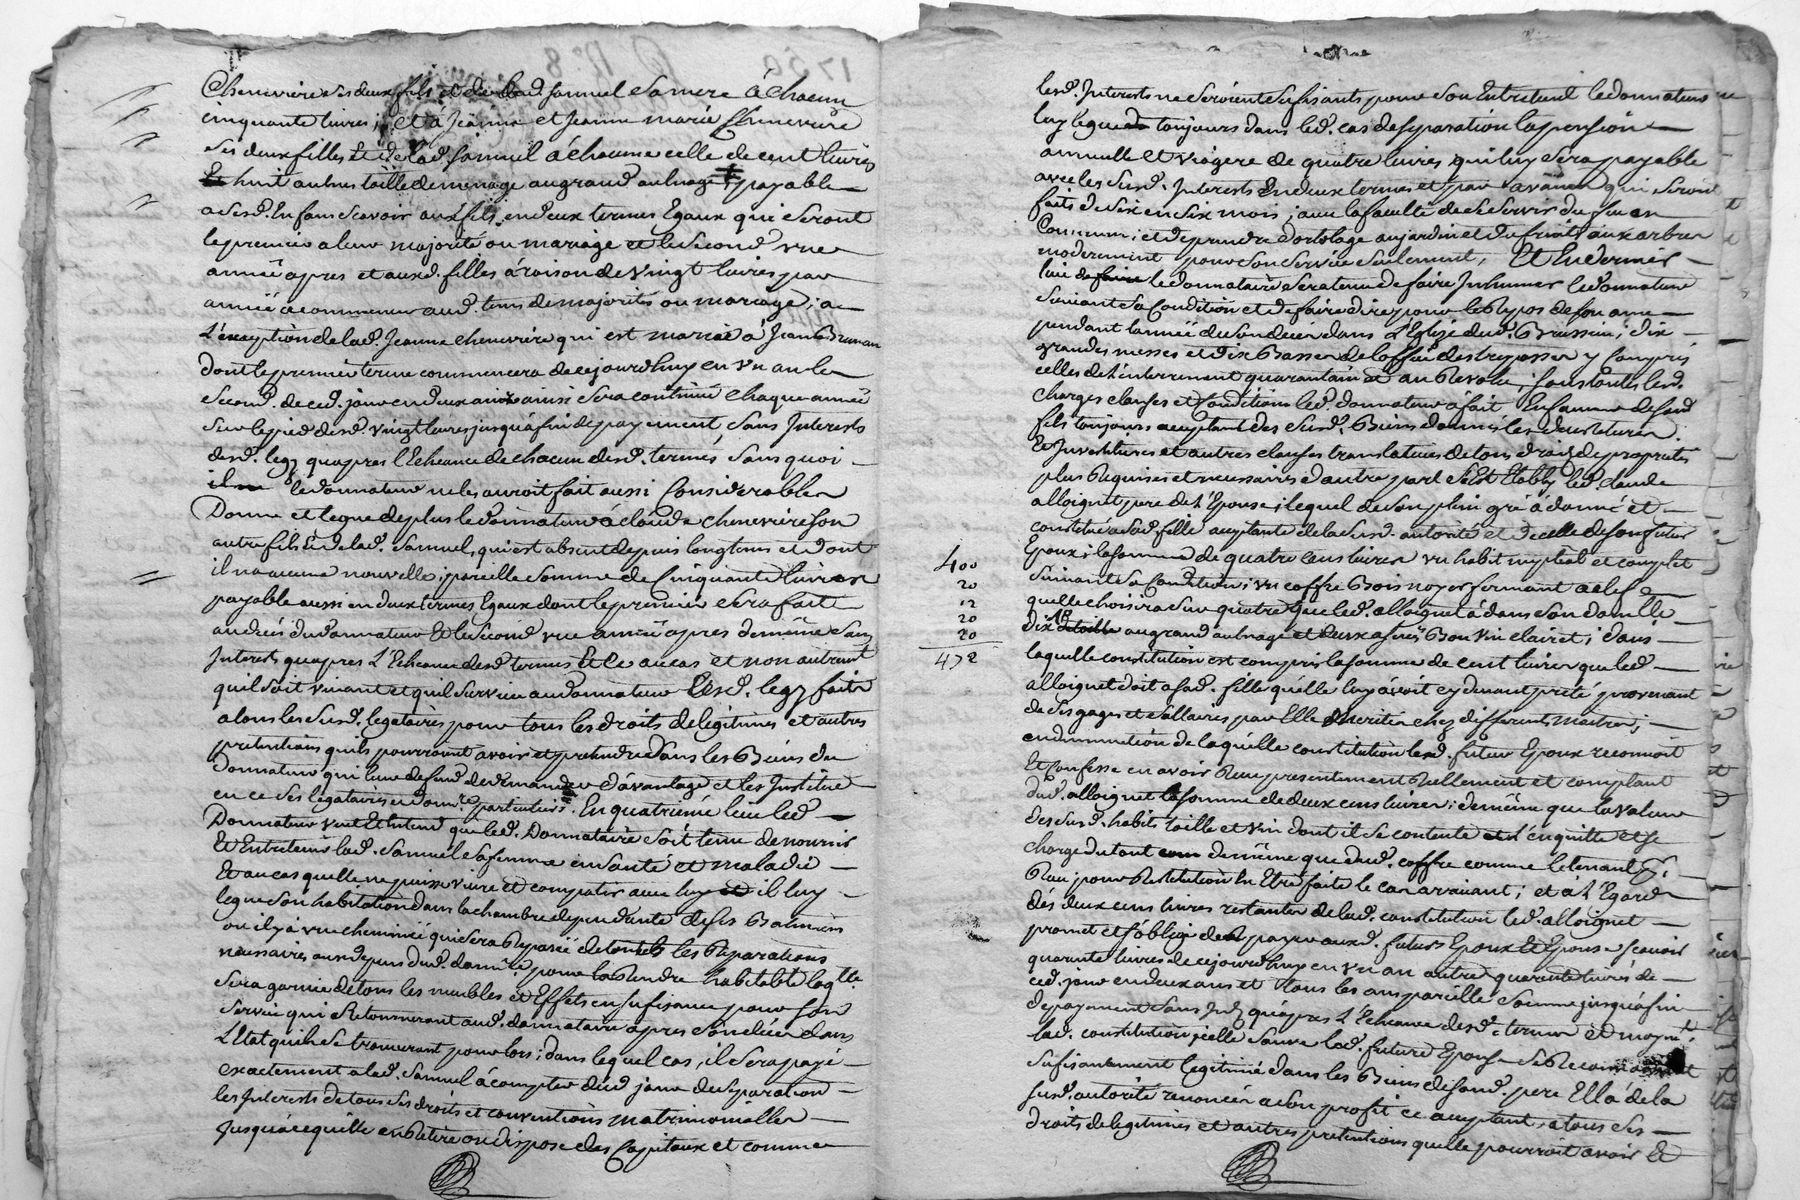 Chenevriere ses deux fils et de lad. Samuel sa mere à chacun
cinquante livres; et à Jeanne et Jeanne marie Chenevriere
ses deux filles et de lad. Samuel à chacune celle de cent livres
huit aulnes toille de menage au grand aulnage payable
a sesd. Enfans scavoir aux fils en deux termes Egaux qui seront
le premier a leur majorité ou mariage et le second une
année apres et auxd. filles à raison de vingt livres par
année a commencer aud. tems de majorité ou mariage; a
L'exception de lad. Jeanne chenevriere qui est mariée à Jean
dont le premier terme commencera de ce jourd'huy en un an le
second de ced. jour en deux ans ainsi sera continué chaque année
sur le pied desd. vingt livres jusqu'à fin de payement sans Interests
desd. legz qu'apres l'Echeance de chacun desd. termes sans quoi
il le donnateur ne les auroit fait aussi Considerables
Donne et legue de plus le donnateur à claude chenevriere son
autre fils et de lad. Samuel, qui est absent depuis longtems et dont
il n'a aucune nouvelle; pareille somme de Cinquante livres
payable aussi en deux termes Egaux dont le premier sera fait
au deces du donnateur et le second une année apres de même sans
Interests qu'apres L'Echeance desd. termes et ce au cas et non autrement
qu'il soit vivant et qu'il survive au donnateur Lesd. legz faits
a tous les susd. legataires pour tous les droits de legitimes et autres
pretentions qu'ils pourroient avoir et pretendre dans les Biens du
donnateur qui leur defend de demander d'avantage et les Institue
en ce ses legataires et particuliers. En quatrieme lieu led.
Donnateur veut et Entend que led. Donnataire soit tenu de nourrir
et Entretenir lad. Samuel sa femme en santé et maladie
et au cas quelle ne puisse vivre et compatir avec luy il luy
legue son habitation dans la chambre dependante de ses Batimens
ou il y a une cheminée qui sera Reparée de toutes les Reparations
necessaires aux depens dud. donnre. pour la Rendre habitable laqlle.
sera garnie de tous les meubles et Effets en sufisance pour son
service qui Retourneront aud. donnataire apres son deces dans
L'Etat qu'ils se trouveront pour lors; dans lequel cas, il sera payé
exactement a lad. Samuel à compter dud. jour de separation
les Interests de tous ses droits et conventions matrimonialles
Jusqu'à ce qu'elle en Retire ou dispose des Capitaux et comme
lesd. Interests ne seroient sufisants pour son Entretient le donnateur
luy legue toujours dans led. cas de separation la pension
annuelle et viagere de quatre livres qui luy sera payable
avec les susd. Interests En deux termes et par avance qui seront
faits de six en six mois; avec la faculté de se servir du four
Commun; et de prendre d'ortolage au jardin et du fruit aux arbres
moderement pour son service seulement. Et En dernier
lieu le donnataire sera tenu de faire Inhumer le donnateur
suivant sa Condition et de faire dire pour le Repos de son ame
pendant l'année de son deces dans L'Eglise dud. Brussieu; dix
grandes messes et dix Basses de l'office des trepassés y Compris
celles de l'enterrement quarantain et au Revolu; sous toutes lesd.
charges clauses et Conditions led. donnateur a fait En faveur de sond.
fils toujours acceptant des susd. Biens donnés les devestitures
et Investitures et autres clauses translatives de tous droits de proprieté
plus Requises et necessaires d'autre part s'est Etably led. claude
alloignet pere de L'Epouse; lequel de son plein gré à donné et
constitué a sad. fille acceptante de la susd. autorité et de celle de son futur
Epoux; la somme de quatre cens livres un habit nuptial et complet
suivant sa Condition; un coffre Bois noyer fermant a clef
quelle choisira sur quatre que led. alloignet a dans son domicile
dix au grand aulnage et deux Bon vin clairet; dans
laquelle constitution est compris la somme de cent livres que led.
alloignet doit a sad. fille qu'elle luy avoit cy devant preté provenant
de ses gages et sallaires par Elle merités chez differents maitres;
en diminution de laquelle constitution led. futur Epoux reconnoit
et confesse en avoir Reçu presentement Réellement et comptant
dud. alloignet la somme de deux cens livres; de même que la valeur
des susd. habits toille et vin dont il se contente l'en quitte et se
charge du tout de même que dud. coffre comme le tenant
Reçu; pour Restitution En Etre faite le cas avenant; et à L'Egard
des deux cens livres restantes de lad. constitution led. alloignet
promet et s'oblige de payer auxd. futurs Epoux et Epouse scavoir
quarante livres de ce jourd'huy en un an autres quarante livres de
ced. jour en deux ans et tous les ans pareille somme jusqu'à fin
de payement sans Intz. qu'apres L'Echeance desd. termes et moyent.
lad. constitution icelle sauve lad. future Epouse se Reconnoissant
sufisamment legitimée dans les Biens de sond. pere Ell'à de la
susd. autorité renoncée a son profit ce acceptant, a tous ses
droits de legitimes et autres pretentions quelle pourroit avoir et
400
20
12
20
20
472